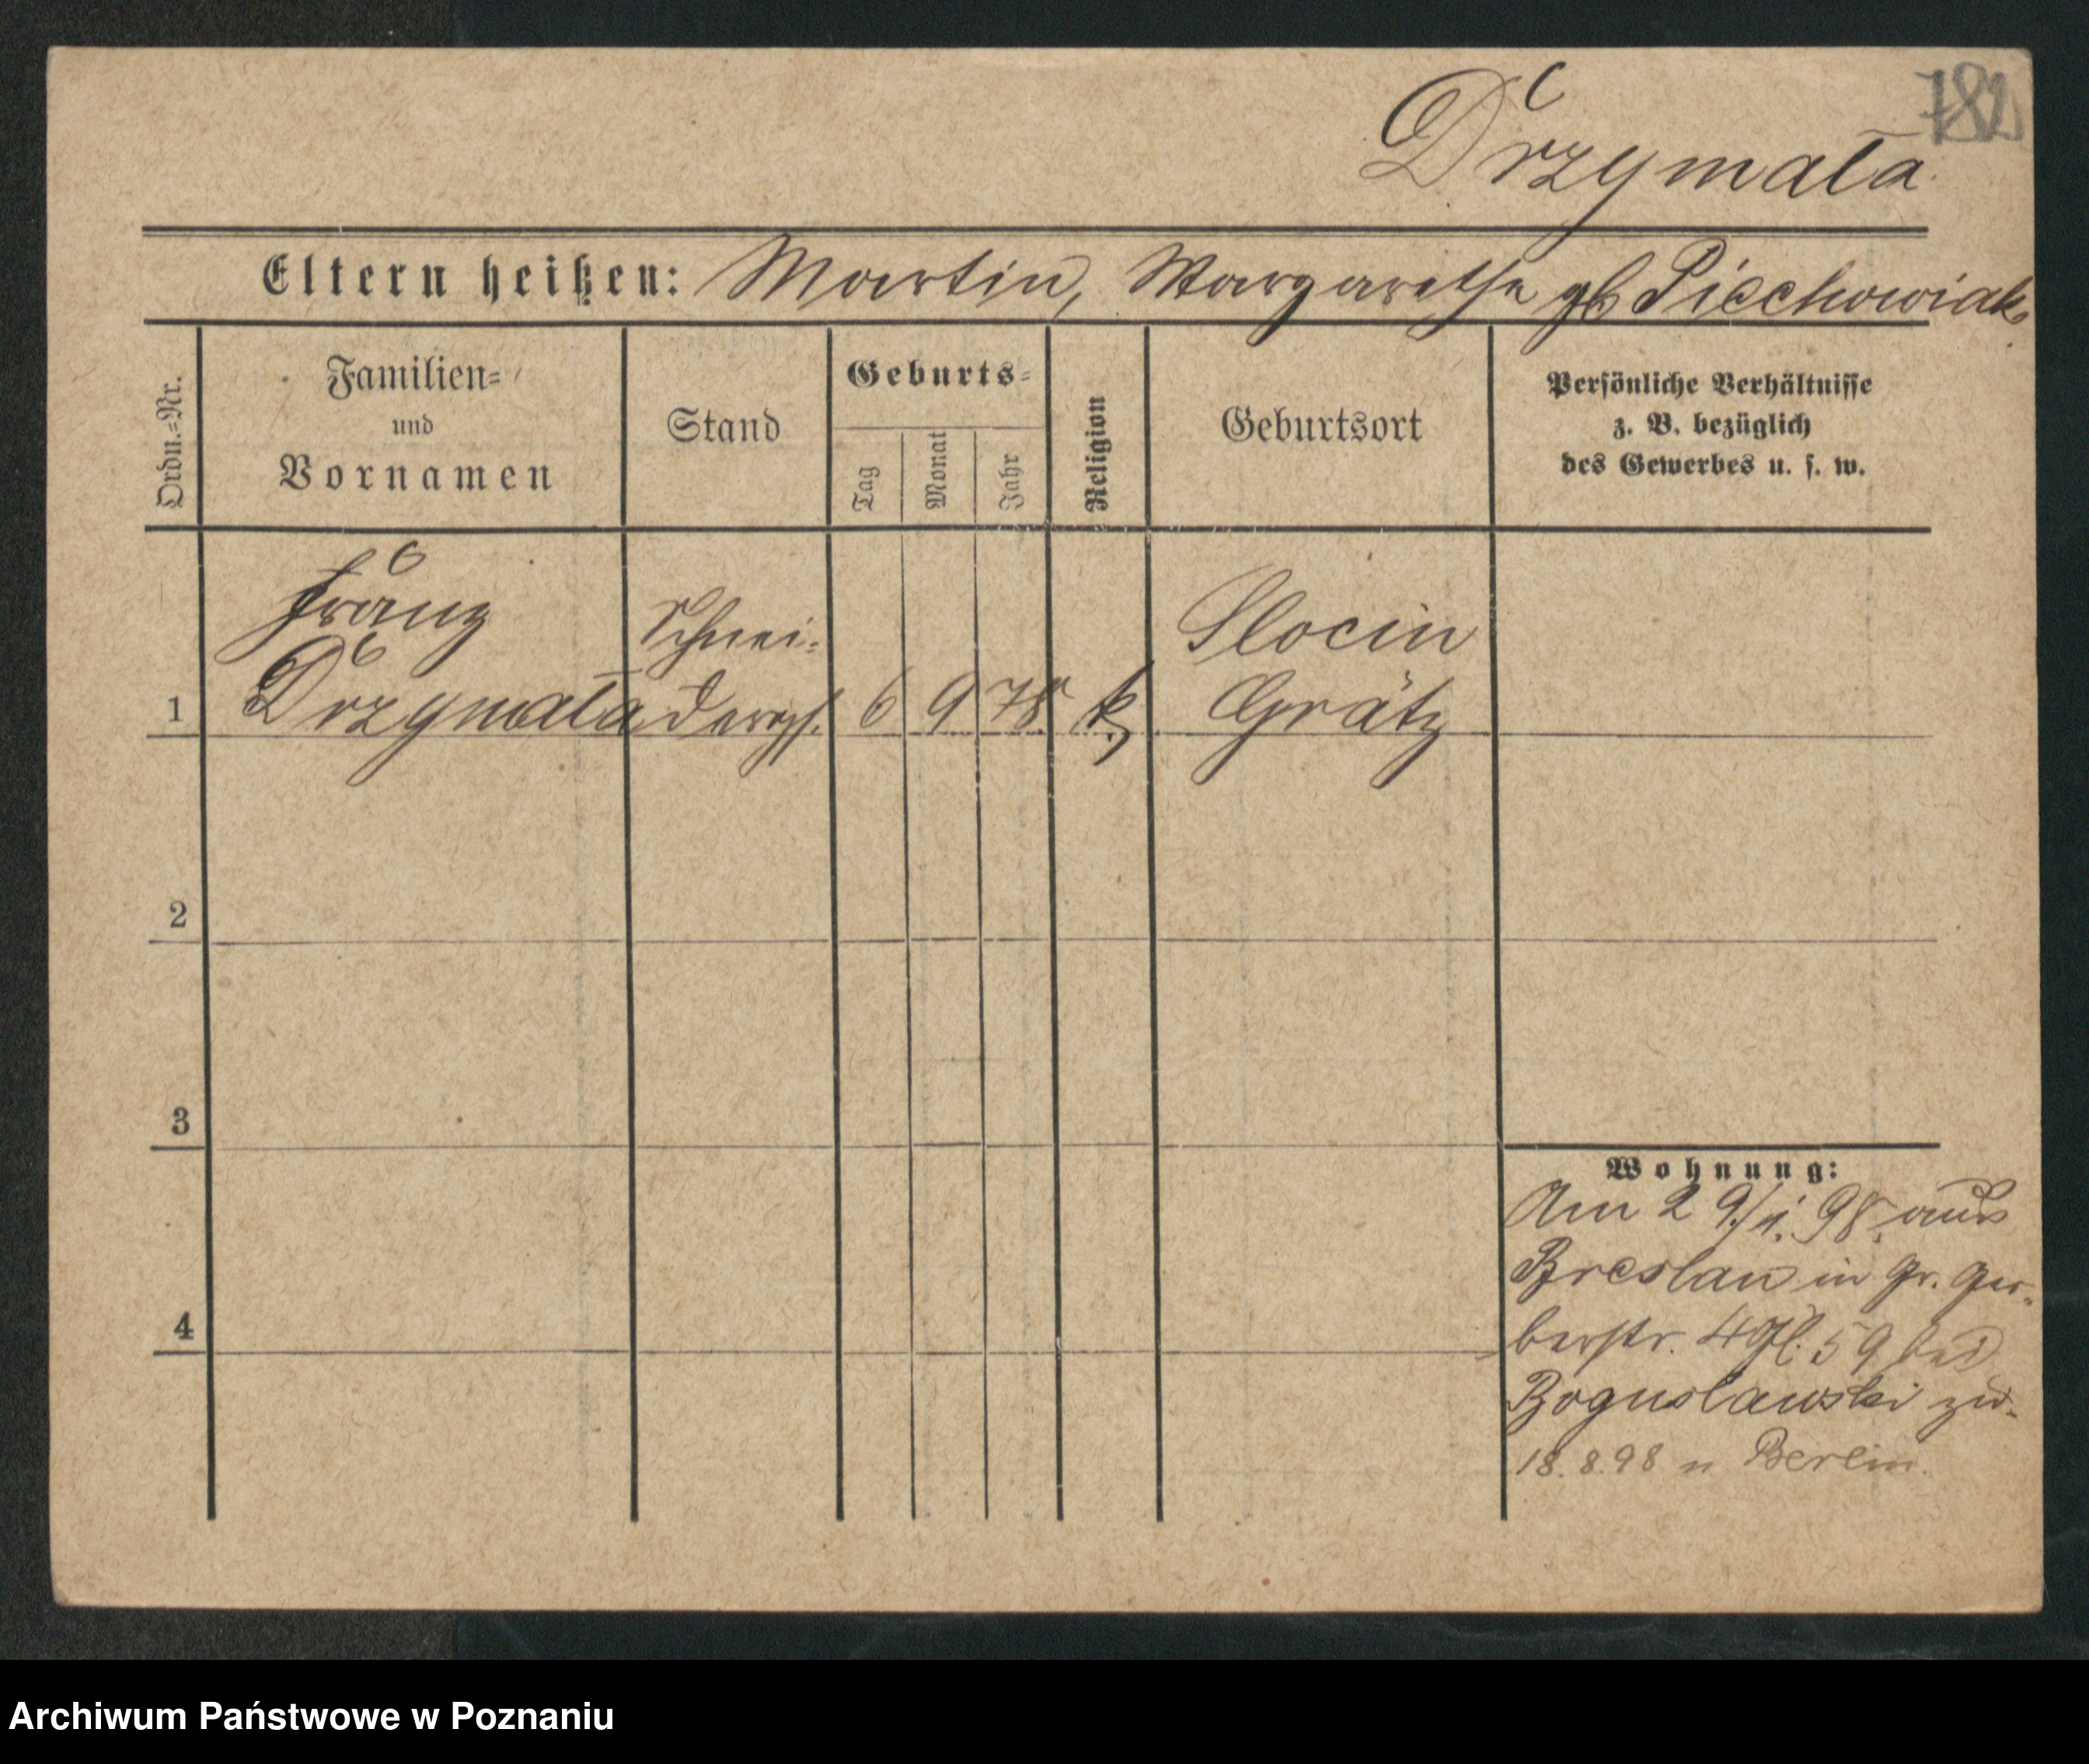 782
Drzymała
Eltern heißen: Martin, Margarethe gb Piechowiak
Ordn.=Nr.
Familien=
und
Vornamen
Stand
Geburts=
Tag
Monat
Jahr
Religion
Geburtsort
Persönliche Verhältnisse
z. B. bezüglich
des Gewerbes u. s. w.
Franz Schnei= Slocin
1 Drzymała dergs. 6 9 78 k, Grätz
2
3
4
Wohnung:
Am 29./1. 98. aus
Breslau in Gr. Ger=
berstr. 49 bei
Boguslawski zu-
18.8.98 n Berlin.
Archiwum Państwowe w Poznaniu